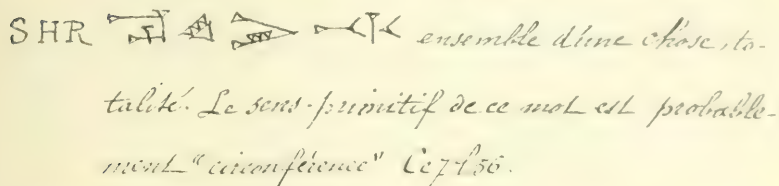 SHR ensemble d'une chose, to-
talité. Le sens primitif de ce mot est probable-
ment "circonférence"